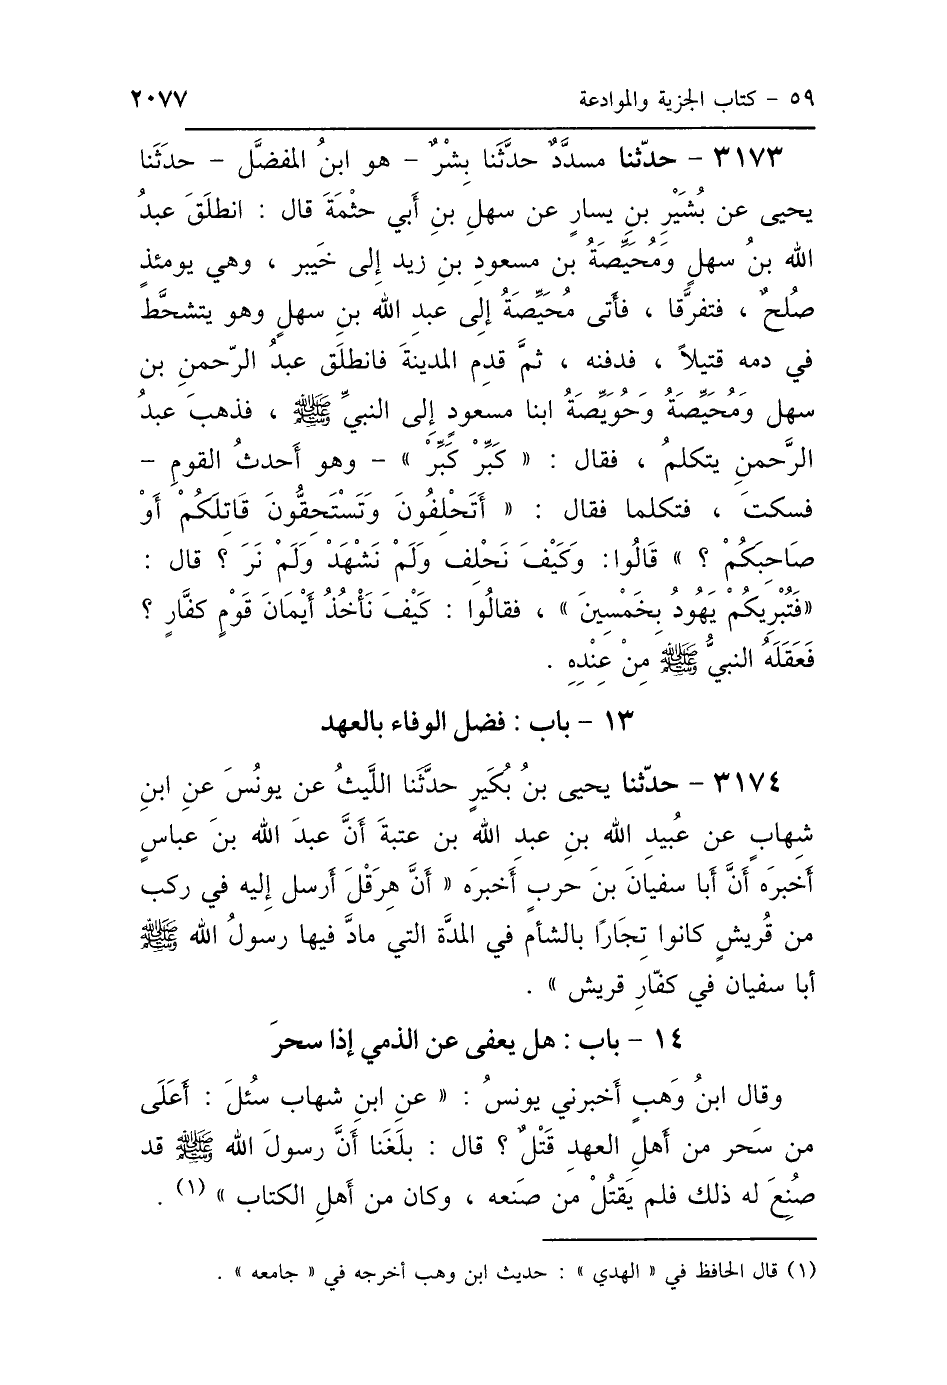 ٥٩ - كتاب الجزية والموادعة ٢٠٧٧
٣١٧٣ - حدّثنا مسدَّدٌ حدَّثَنا بِشْرٌ - هو ابنُ المفضَّل - حدثَنا
يحيى عن بُشَيْرِ بنِ يسارٍ عن سهلِ بنِ أَبي حثْمَةَ قال : انطلَقَ عبدُ
الله بنُ سهلٍ وَمُحَيِّصَةُ بن مسعودِ بنِ زيد إلى خَيبر ، وهي يومئذٍ
صُلحٌ ، فتفرَّقا ، فأَتى مُحَيِّصَةُ إلى عبدِ الله بنِ سهلٍ وهو يتشحَّط
في دمه قتيلاً ، فدفنه ، ثمَّ قدم المدينةَ فانطلَق عبدُ الرّحمنِ بن
سهل وَمُحَيِّصَةُ وَحُوَيِّصَةُ ابنا مسعودٍ إلى النبيِّ ﷺ ، فذهبَ عبدُ
الرَّحمنِ يتكلمُ ، فقال : « كَبِّرْ كَبِّرْ » - وهو أَحدثُ القومِ -
فسكتَ ، فتكلما فقال : « أَتَحْلِفُونَ وَتَسْتَحِقُّونَ قَاتِلَكُمْ أَوْ
صَاحِبَكُمْ ؟ » قَالُوا: وَكَيْفَ نَحْلِف وَلَمْ نَشْهَدْ وَلَمْ نَرَ ؟ قال :
«فَتُبْرِيكُمْ يَهُودُ بِخَمْسِينَ » ، فقالُوا : كَيْفَ نَأْخُذُ أَيْمَانَ قَوْمٍ كفَّارٍ ؟
فَعَقَلَهُ النبيُّ ﷺ مِنْ عِنْدِهِ .
١٣ - باب : فضل الوفاء بالعهد
٣١٧٤ - حدّثنا يحيى بنُ بُكَيرٍ حدَّثَنا اللَّيثُ عن يونُسَ عنِ ابنِ
شهابٍ عن عُبيدِ الله بنِ عبدِ الله بن عتبةَ أَنَّ عبدَ الله بنَ عباسٍ
أَخبرَه أَنَّ أَبا سفيانَ بنَ حربٍ أَخبرَه « أَنَّ هِرَقْلَ أَرسل إليه في ركب
من قُريشٍ كانوا تِجَارًا بالشأم في المدَّة التي مادَّ فيها رسولُ الله ﷺ
أبا سفيان في كفّارِ قريش » .
١٤ - باب : هل يعفى عن الذمي إذا سحرَ
وقال ابنُ وَهبٍ أَخبرني يونسُ : « عنِ ابنِ شهاب سئلَ : أَعَلَى
من سَحر من أَهلِ العهدِ قَتْلٌ ؟ قال : بلَغَنا أَنَّ رسولَ الله ﷺ قد
صُنِعَ له ذلك فلم يَقتُلْ من صَنَعه ، وكان من أَهلِ الكتاب » (١) .
(١) قال الحافظ في « الهدي » : حديث ابن وهب أخرجه في « جامعه » .